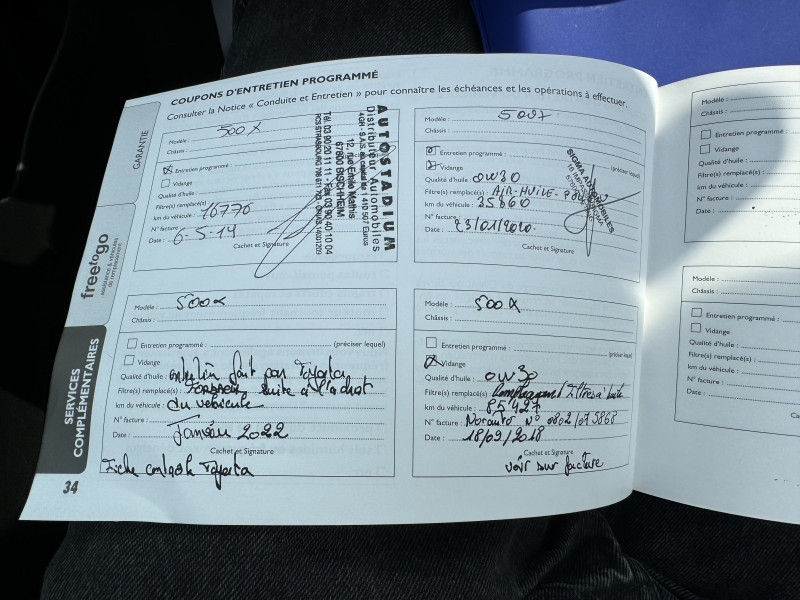 COUPONS D'ENTRETIEN PROGRAMMÉ
Consulter la Notice « Conduite et Entretien » pour connaître les échéances et les opérations à effectuer.
GARANTIE
freetogo
assurance & véhicules
de remplacement
SERVICES
COMPLÉMENTAIRES
34
Modèle : 500 X
Châssis :
Entretien programmé :
Vidange
Qualité d'huile :
Filtre(s) remplacé(s) :
km du véhicule : 16776
N° facture :
Date : 6-5-19
Cachet et Signature
AUTOSTADIUM
Distributeur Automobiles
12, rue Emile Mathis
67800 BISCHHEIM
Tél. 03 90 20 11 11 - Fax 03 90 40 10 04
Modèle :
Châssis :
Entretien programmé : (préciser lequel)
Vidange
Qualité d'huile : 0W30
Filtre(s) remplacé(s) : AIR-HUILE-
km du véhicule : 35860
N° facture :
Date : 23/01/2020.
Cachet et Signature
Modèle : 500X
Châssis :
Entretien programmé : (préciser lequel)
Vidange
Qualité d'huile : entretien fait par
Filtre(s) remplacé(s) : suite à l'achat
km du véhicule : du véhicule
N° facture :
Date : Janvier 2022
Cachet et Signature
Modèle : 500X
Châssis :
Entretien programmé : (préciser lequel)
Vidange
Qualité d'huile : 0W30
Filtre(s) remplacé(s) :
km du véhicule : 85427
N° facture : Norauto N°
Date :
Cachet et Signature
voir sur facture
Modèle :
Châssis :
Entretien programmé :
Vidange
Qualité d'huile :
Filtre(s) remplacé(s) :
km du véhicule :
N° facture :
Date :
Modèle :
Châssis :
Entretien programmé :
Vidange
Qualité d'huile :
Filtre(s) remplacé(s) :
km du véhicule :
N° facture :
Date :